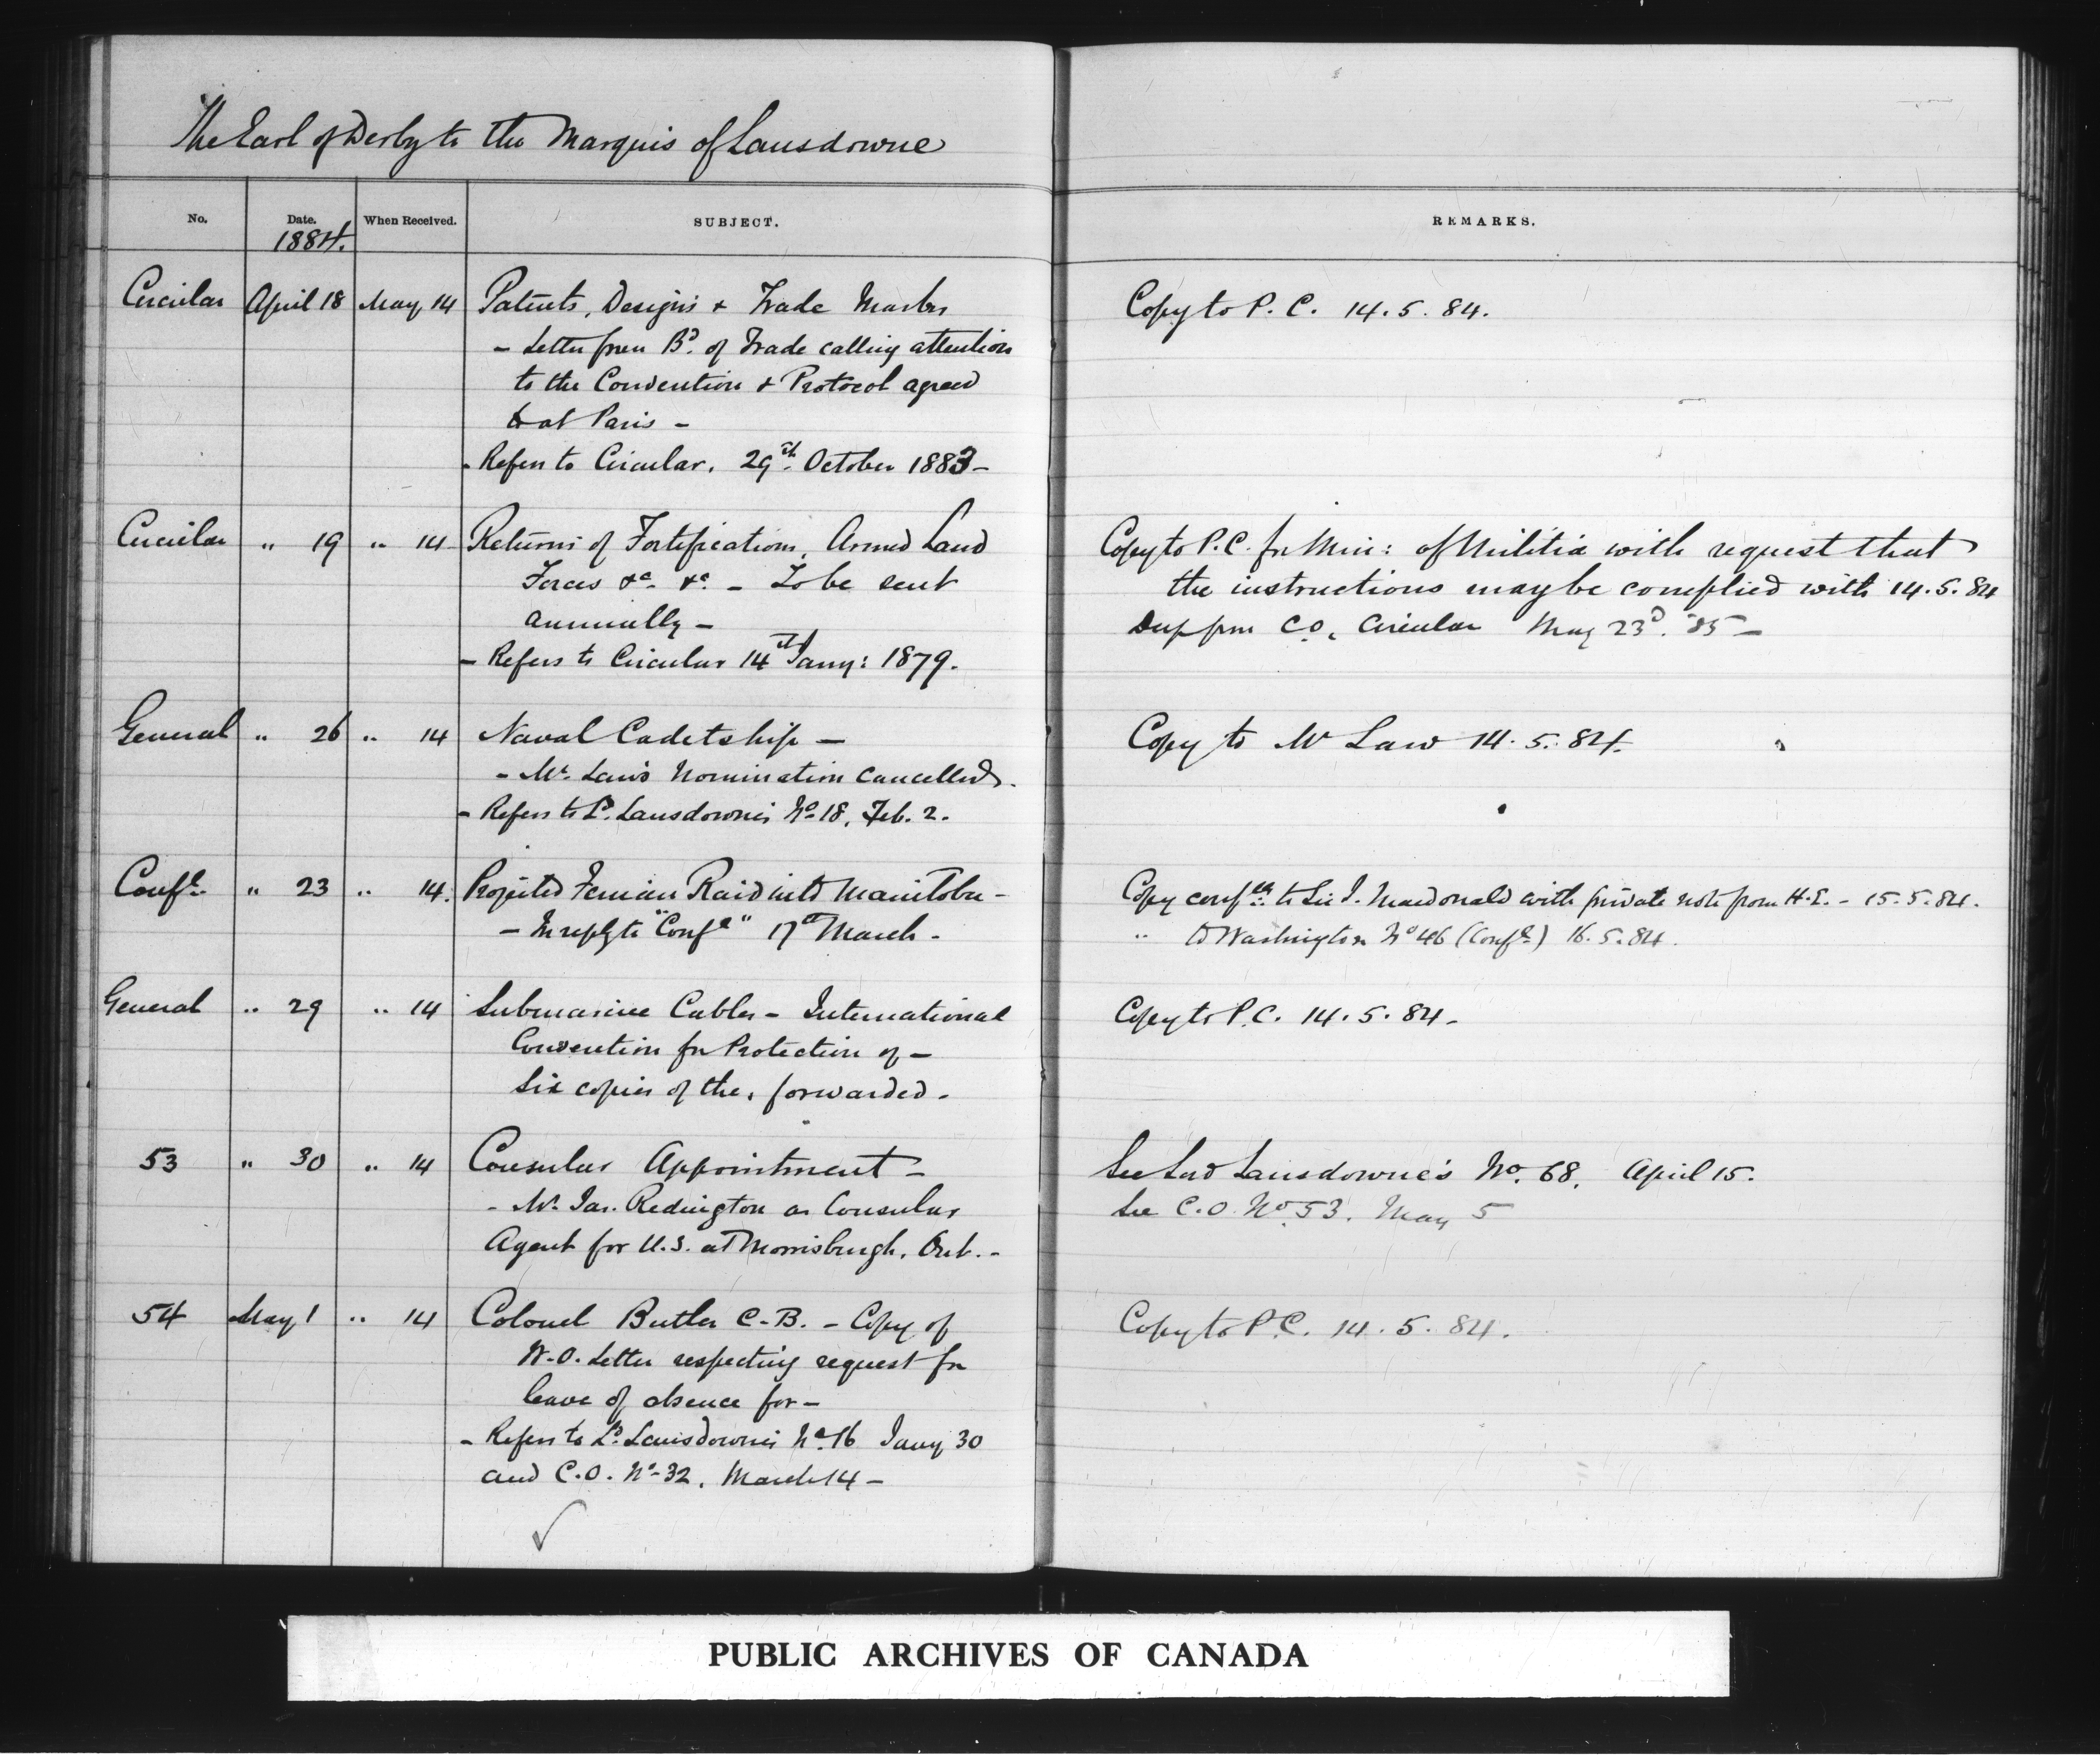 The Earl of Derby to the Marquis of Lansdowne
No. Date. When Received. SUBJECT. REMARKS.
1884.
Circular April 18 May 14 Patents, Designs & Trade Marks Copy to P. C. 14. 5. 84.
- Letter from Bd. of Trade calling attention
to the Convention & Protocol agreed
to at Paris -
- Refers to Circular, 29th October 1883 -
Circular " 19 " 14 Returns of Fortifications, Armed Land Copy to P.C. for Min: of Militia with request that
Forces &c. &c. - To be sent the instructions may be complied with 14.5.84
annually - Dup from C.O. Circular May 23d. 85 -
- Refers to Circular 14th Jany: 1879.
General " 26 " 14 Naval Cadetship - Copy to Mr Law 14. 5. 84.
- Mr. Law's nomination cancelled.
- Refers to Ld. Lansdowne's No 18, Feb. 2.
Confl. " 23 " 14. Projected Fenian Raid into Manitoba - Copy confdl. to Sir J. Macdonald with private note from H.E. - 15.5.84.
- In reply to "Confl" 17th March - " to Washington No 46 (Confl.) 16.5.84.
General " 29 " 14 Submarine Cables - International Copy to P.C. 14. 5. 84 -
Convention for Protection of -
Six copies of the, forwarded -
53 " 30 " 14 Consular Appointment - See Lord Lansdowne's No. 68, April 15.
- Mr. Jas. Redington as Consular See C.O. No 53. May 5
Agent for U.S. at Morrisburgh, Ont. -
54 May 1 " 14 Colonel Butler C.B. - Copy of Copy to P.C. 14. 5. 84.
W.O. Letter respecting request for
leave of absence for -
- Refers to Ld. Lansdowne's No. 16 Jany 30
and C.O. No 32, March 14 -
PUBLIC ARCHIVES OF CANADA